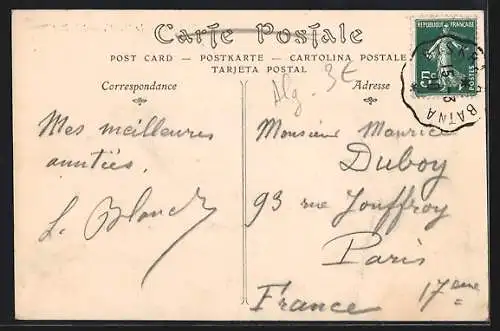 Carte Postale
POST CARD — POSTKARTE — CARTOLINA POSTALE
TARJETA POSTAL
Correspondance
Adresse
Alg. 3E
REPUBLIQUE FRANÇAISE
POSTES
BATNA
Mes meilleures
amitiés.
L. Blanch
Monsieur Maurice
Duboy
93 rue Jouffroy
Paris
17eme
France